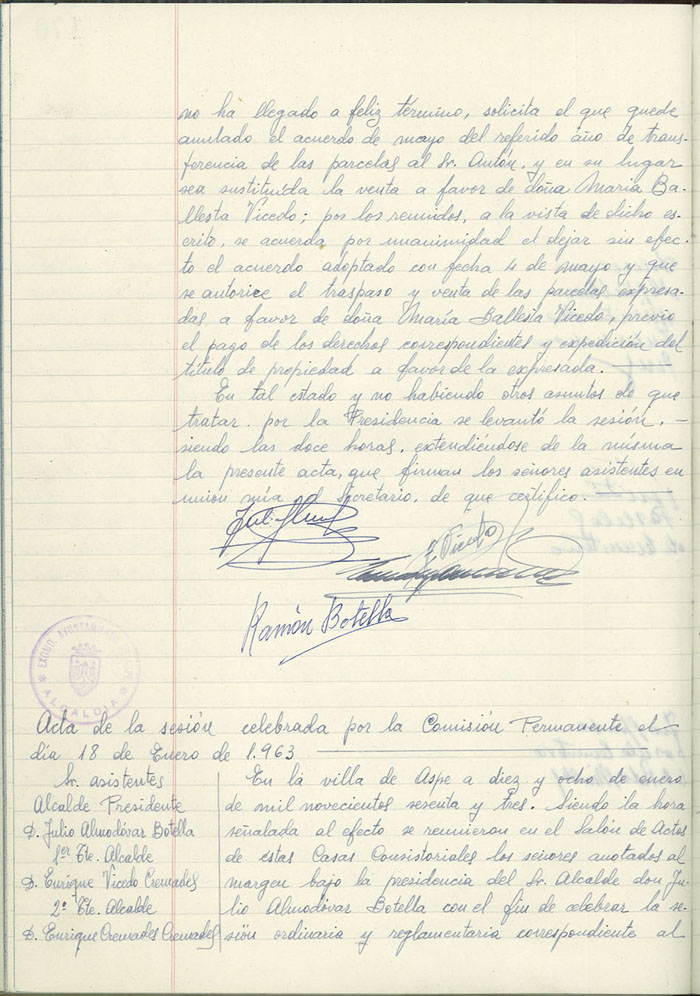 no ha llegado a feliz término, solicita el que quede
anulado el acuerdo de mayo del referido año de trans-
ferencia de las parcelas al Sr. Antón, y en su lugar
sea sustituida la venta a favor de doña María Ba-
llesta Vicedo; por los reunidos, a la vista de dicho es-
crito, se acuerda por unanimidad el dejar sin efec-
to el acuerdo adoptado con fecha 4 de mayo y que
se autorice el traspaso y venta de las parcelas expresa-
das a favor de doña María Ballesta Vicedo, previo
el pago de los derechos correspondientes y expedición del
título de propiedad a favor de la expresada.
En tal estado y no habiendo otros asuntos de que
tratar. por la Presidencia se levantó la sesión, -
siendo las doce horas, extendiéndose de la misma
la presente acta, que firman los señores asistentes en
union mía el Secretario, de que certifico.
E. Vicedo
Ramón Botella
EXCMO. AYUNTAMIENTO DE ASPE
ALCALDIA
Acta de la sesión celebrada por la Comisión Permanente el
día 18 de Enero de 1.963
Sr. asistentes
Alcalde Presidente
D. Julio Almodóvar Botella
1er Tte. Alcalde
D. Enrique Vicedo Cremades
2º Tte. Alcalde
D. Enrique Cremades Cremades
En la villa de Aspe a diez y ocho de enero
de mil novecientos sesenta y tres. Siendo la hora
señalada al efecto se reunieron en el Salón de Actos
de estas Casas Consistoriales los señores anotados al
margen bajo la presidencia del Sr. Alcalde don Ju-
lio Almodóvar Botella con el fin de celebrar la se-
sión ordinaria y reglamentaria correspondiente al